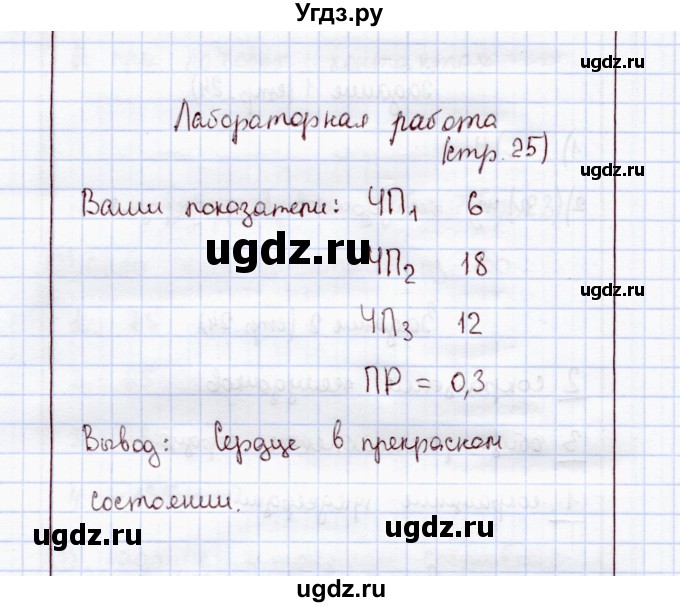 Угдз.ру
ugdz.ru
Лабораторная работа
(стр. 25)
ugdz.ru
Ваши показатели: ЧП1 6
ugdz.ru
ЧП2 18
ugdz.ru
ЧП3 12
ПР = 0,3
Вывод: Сердце в прекрасном
состоянии.
ugdz.ru
ugdz.ru
ugdz.ru